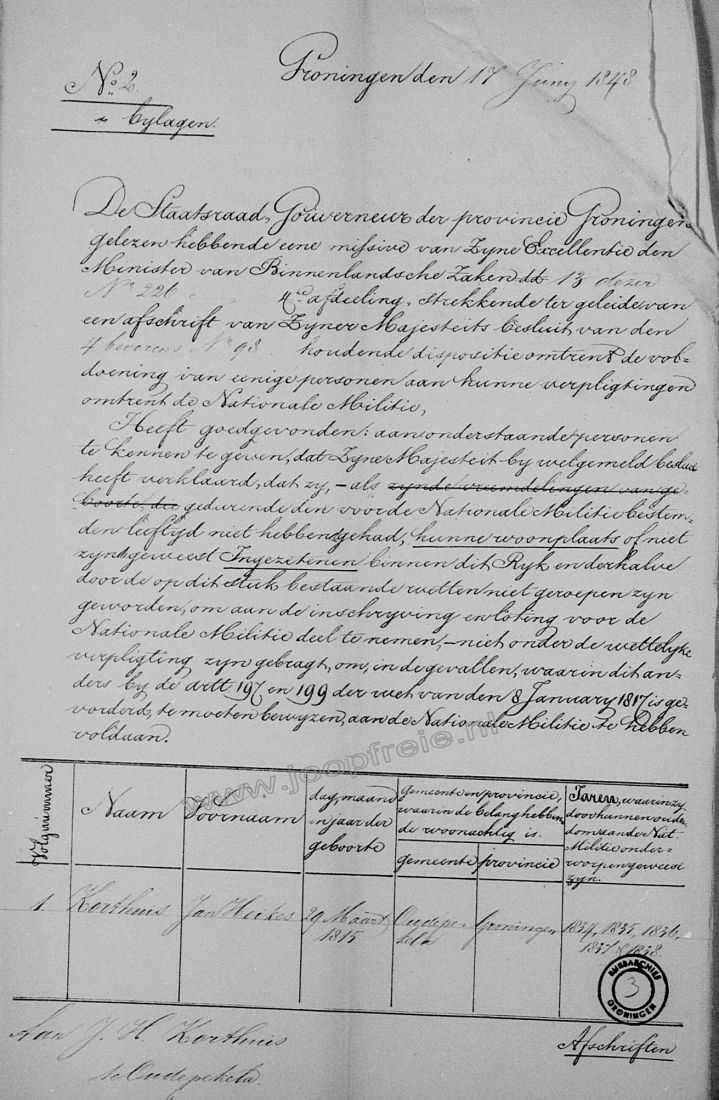 Groningen den 17 Juny 1848
No. 2.
bylagen.
De Staatsraad, Gouverneur der provincie Groningen
gelezen hebbende eene missive van Zyne Excellentie den
Minister van Binnenlandsche Zaken dd. 13 dezer
No 226 4de afdeeling, strekkende ter geleide van
een afschrift van Zyner Majesteits besluit van den
4 bevorens No 98. houdende dispositie omtrent de vol-
doening van eenige personen aan hunne verpligtingen
omtrent de Nationale Militie,
Heeft goedgevonden: aan onderstaande personen
te kennen te geven, dat Zyne Majesteit by welgemeld besluit
heeft verklaard, dat zy, – als zynde vreemdelingen van ge-
boorte, die gedurende den voor de Nationale Militie bestem-
den leeftyd niet hebben gehad, hunne woonplaats of niet
zyn geweest Ingezetenen binnen dit Ryk en derhalve
door de op dit stuk bestaande wetten niet geroepen zyn
geworden, om aan de inschryving en loting voor de
Nationale Militie deel te nemen, – niet onder de wettelyke
verpligting zyn gebragt, om, in de gevallen, waarin dit an-
ders by de artt. 197 en 199 der wet van den 8 January 1817 is ge-
vorderd, te moeten bewyzen, aan de Nationale Militie te hebben
voldaan.
www.joopfreie.nl
Volgnummer
Naam
Voornaam
dag, maand
en jaar der
geboorte
gemeente en provincie,
waarin de belanghebben-
de woonachtig is.
gemeente
provincie
Jaren, waarin zy
door hunnen ouder-
dom aan de Nat.
Militie onder-
worpen geweest
zyn.
1. Korthuis Jan Heikes 29 Maart 1815 Oudepe-kela Groningen 1834, 1835, 1836,
1837 & 1838.
RIJKSARCHIEF
GRONINGEN
3
Aan J. H. Korthuis
te Oudepekela.
Afschriften